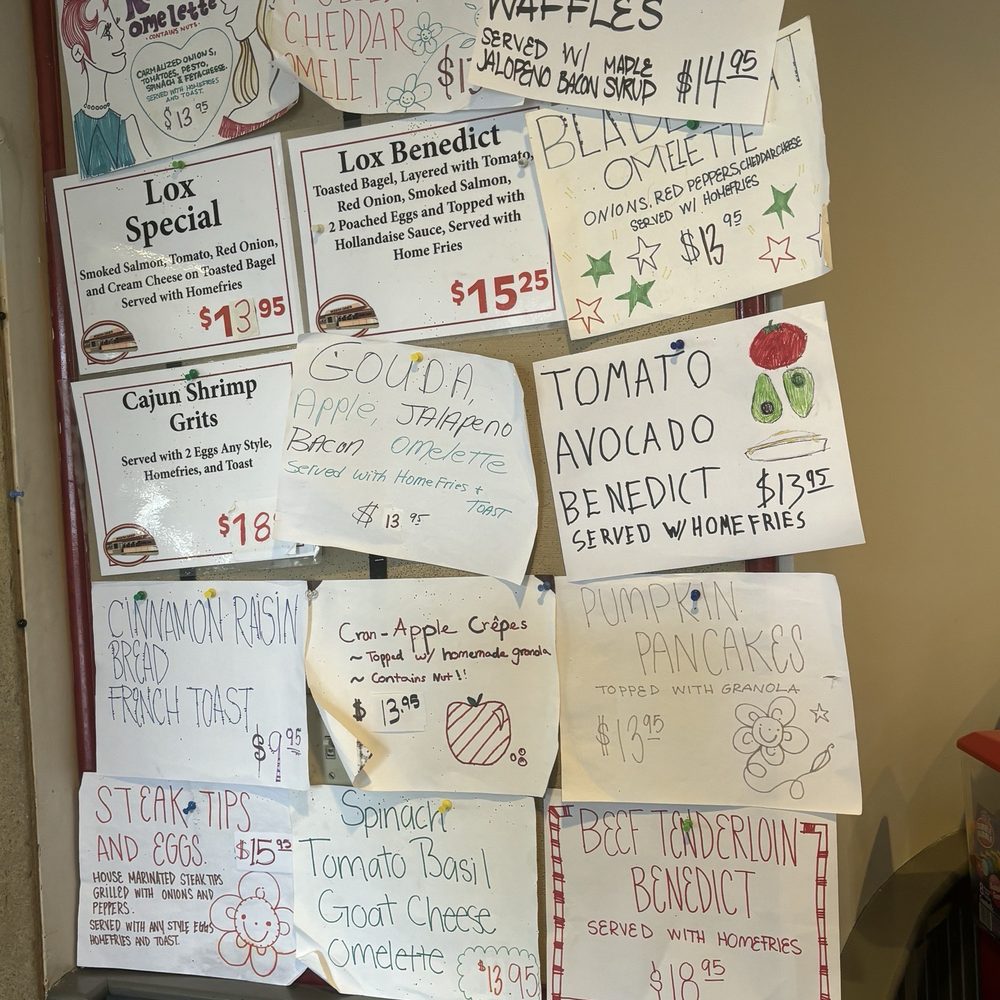 omelette
- CONTAINS NUTS -
CARMALIZED ONIONS,
TOMATOES, PESTO,
SPINACH & FETACHEESE.
SERVED WITH HOMEFRIES
AND TOAST.
$13.95
CHEDDAR
OMELET
WAFFLES
SERVED W/ MAPLE
JALOPENO BACON SYRUP
$14.95
OMELETTE
ONIONS, RED PEPPERS, CHEDDAR CHEESE
SERVED W/ HOMEFRIES
$13.95
Lox
Special
Smoked Salmon, Tomato, Red Onion,
and Cream Cheese on Toasted Bagel
Served with Homefries
$13.95
Lox Benedict
Toasted Bagel, Layered with Tomato,
Red Onion, Smoked Salmon,
2 Poached Eggs and Topped with
Hollandaise Sauce, Served with
Home Fries
$15.25
Cajun Shrimp
Grits
Served with 2 Eggs Any Style,
Homefries, and Toast
$18
GOUDA,
Apple, JALAPENO
BACON OMELETTE
Served with HomeFries +
TOAST
$13.95
TOMATO
AVOCADO
BENEDICT $13.95
SERVED W/ HOMEFRIES
CINNAMON RAISIN
BREAD
FRENCH TOAST
$9.95
Cran-Apple Crêpes
~ Topped w/ homemade granola
~ Contains Nut!!
$13.95
PUMPKIN
PANCAKES
TOPPED WITH GRANOLA
$13.95
STEAK TIPS
AND EGGS. $15.95
HOUSE MARINATED STEAK TIPS
GRILLED WITH ONIONS AND
PEPPERS.
SERVED WITH ANY STYLE EGGS
HOMEFRIES AND TOAST.
Spinach
Tomato Basil
Goat Cheese
Omelette
$13.95
BEEF TENDERLOIN
BENEDICT
SERVED WITH HOMEFRIES
$18.95